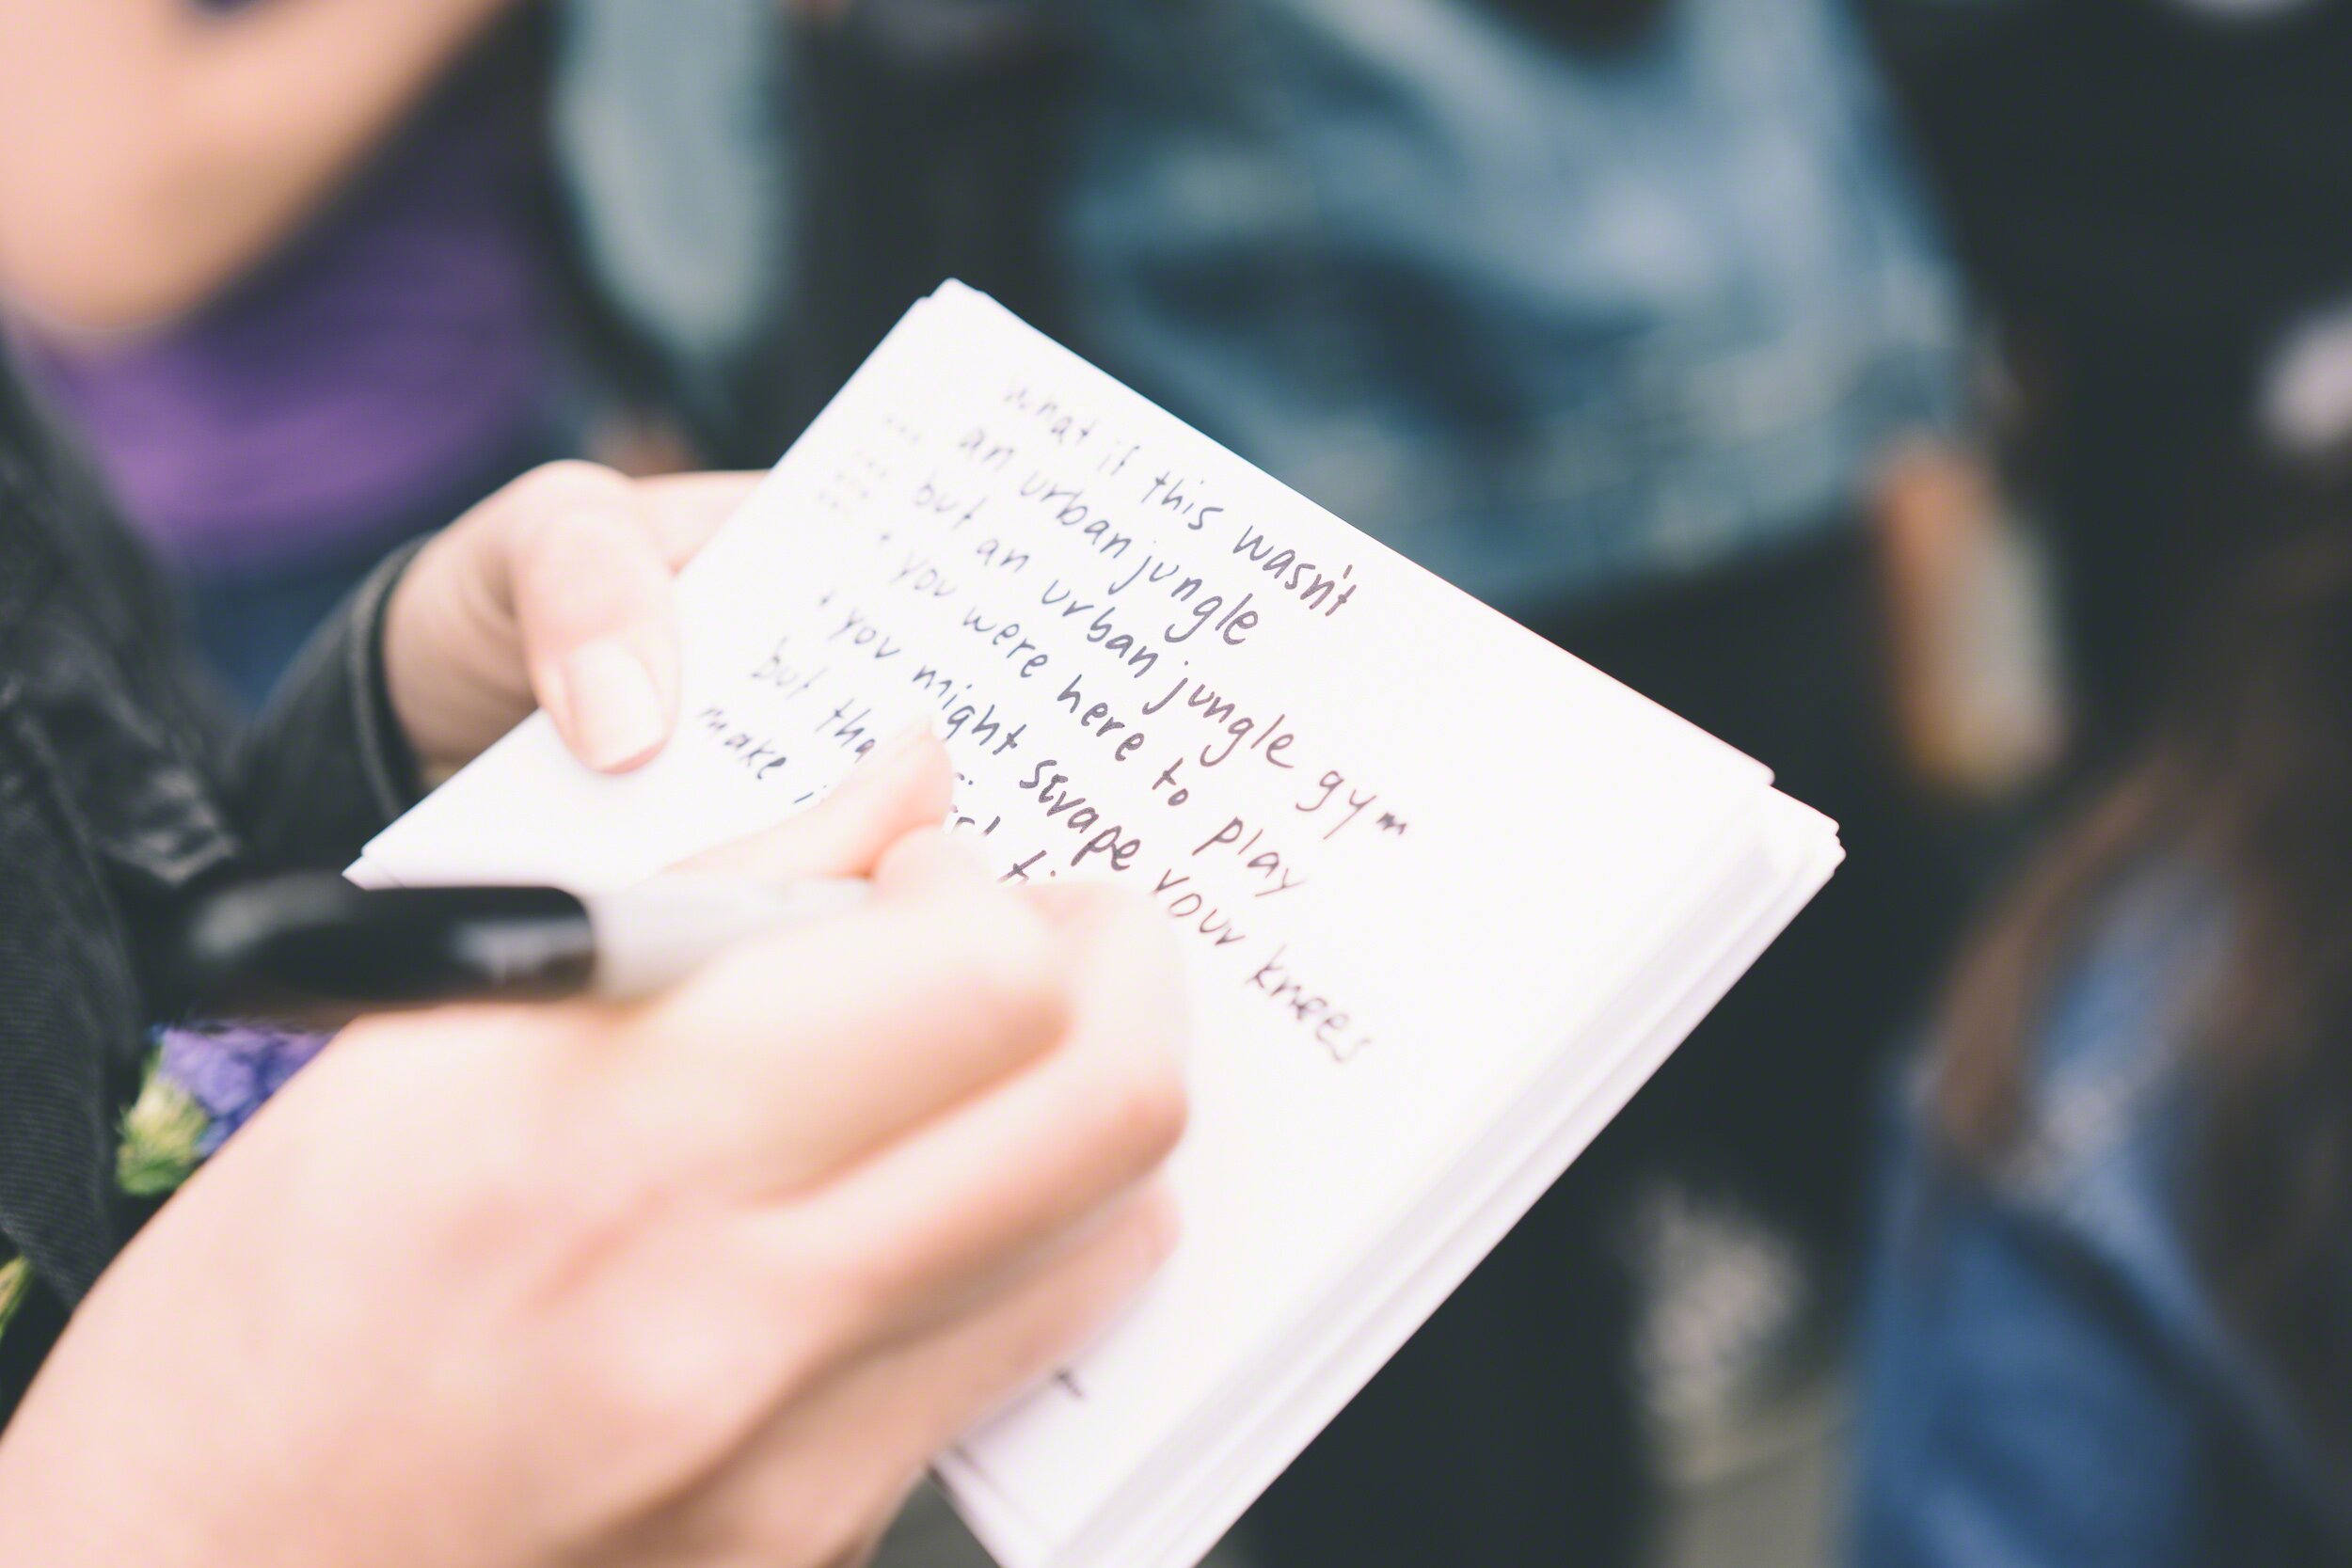 what if this wasn't
an urban jungle
but an urban jungle gym
you were here to play
you might scrape your knees
but
make